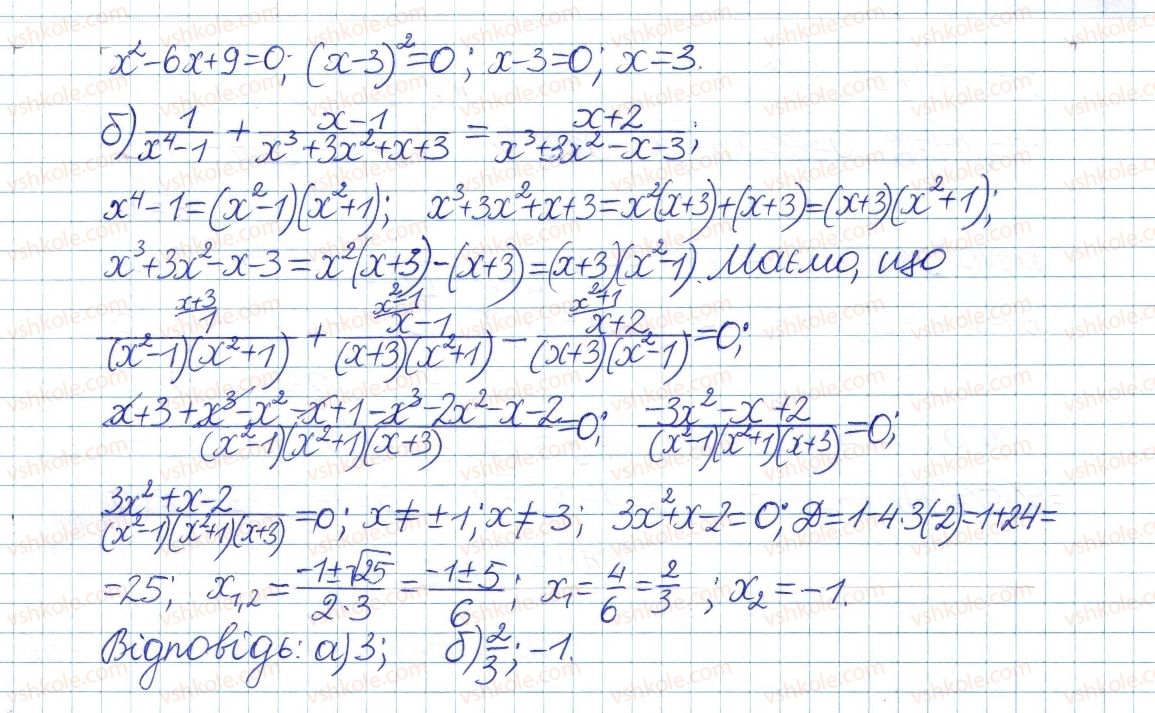 x² - 6x + 9 = 0; (x-3)² = 0; x-3 = 0; x = 3.
б) 1/(x⁴-1) + (x-1)/(x³+3x²+x+3) = (x+2)/(x³+3x²-x-3);
x⁴-1 = (x²-1)(x²+1); x³+3x²+x+3 = x²(x+3)+(x+3) = (x+3)(x²+1);
x³+3x²-x-3 = x²(x+3)-(x+3) = (x+3)(x²-1). Маємо, що
x+3 x²-1 x²+1
1/((x²-1)(x²+1)) + (x-1)/((x+3)(x²+1)) - (x+2)/((x+3)(x²-1)) = 0;
(x+3+x³-x²-x+1-x³-2x²-x-2)/((x²-1)(x²+1)(x+3)) = 0; (-3x²-x+2)/((x²-1)(x²+1)(x+3)) = 0;
(3x²+x-2)/((x²-1)(x²+1)(x+3)) = 0; x ≠ ±1; x ≠ -3; 3x²+x-2 = 0; D = 1-4·3(-2) = 1+24 =
= 25; x₁,₂ = (-1±√25)/(2·3) = (-1±5)/6; x₁ = 4/6 = 2/3; x₂ = -1.
Відповідь: а) 3; б) 2/3; -1.